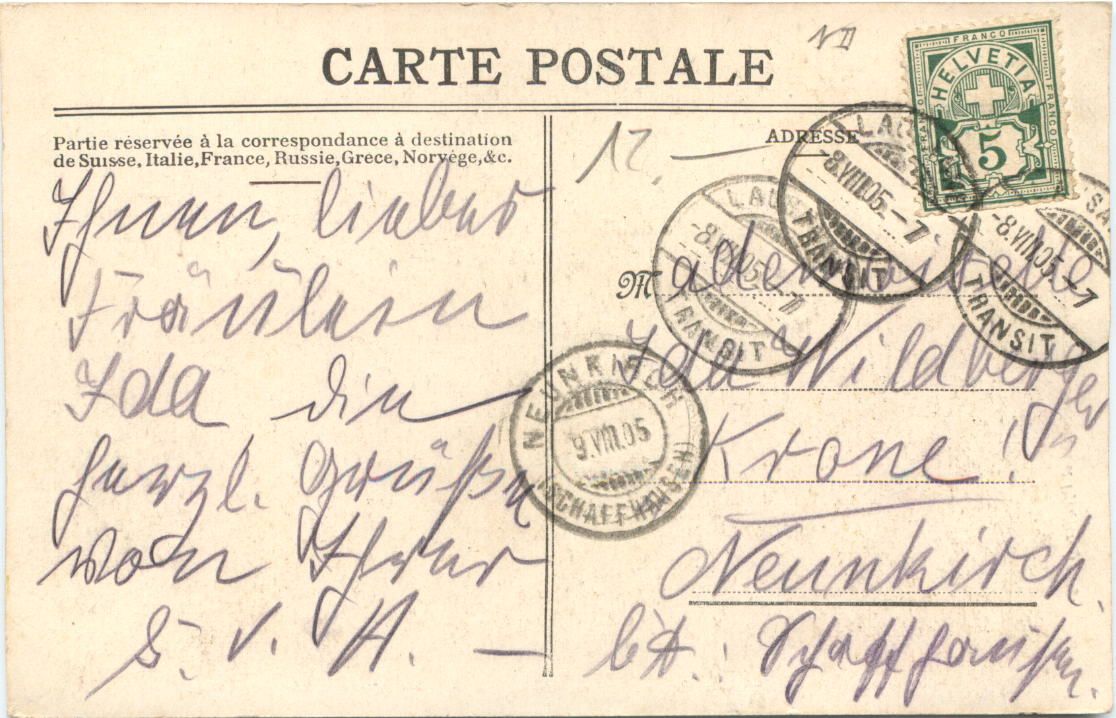 CARTE POSTALE
Partie réservée à la correspondance à destination
de Suisse, Italie, France, Russie, Grece, Norvége, &c.
Ihnen, liebes
Fräulein
Ida die
herzl. Grüße
von Ihrer
S. v. A. —
12. —
ADRESSE
FRANCO
FRANCO
FRANCO
HELVETIA
5
8.VIII.05.-7
TRANSIT
-8.VIII.05.-7
TRANSIT
-8.VIII.05.-7
TRANSIT
NEUNKIRCH
9.VIII.05
(SCHAFFHAUSEN)
Mademoiselle
Ida Wildberger
Krone
Neunkirch.
Schaffhausen.